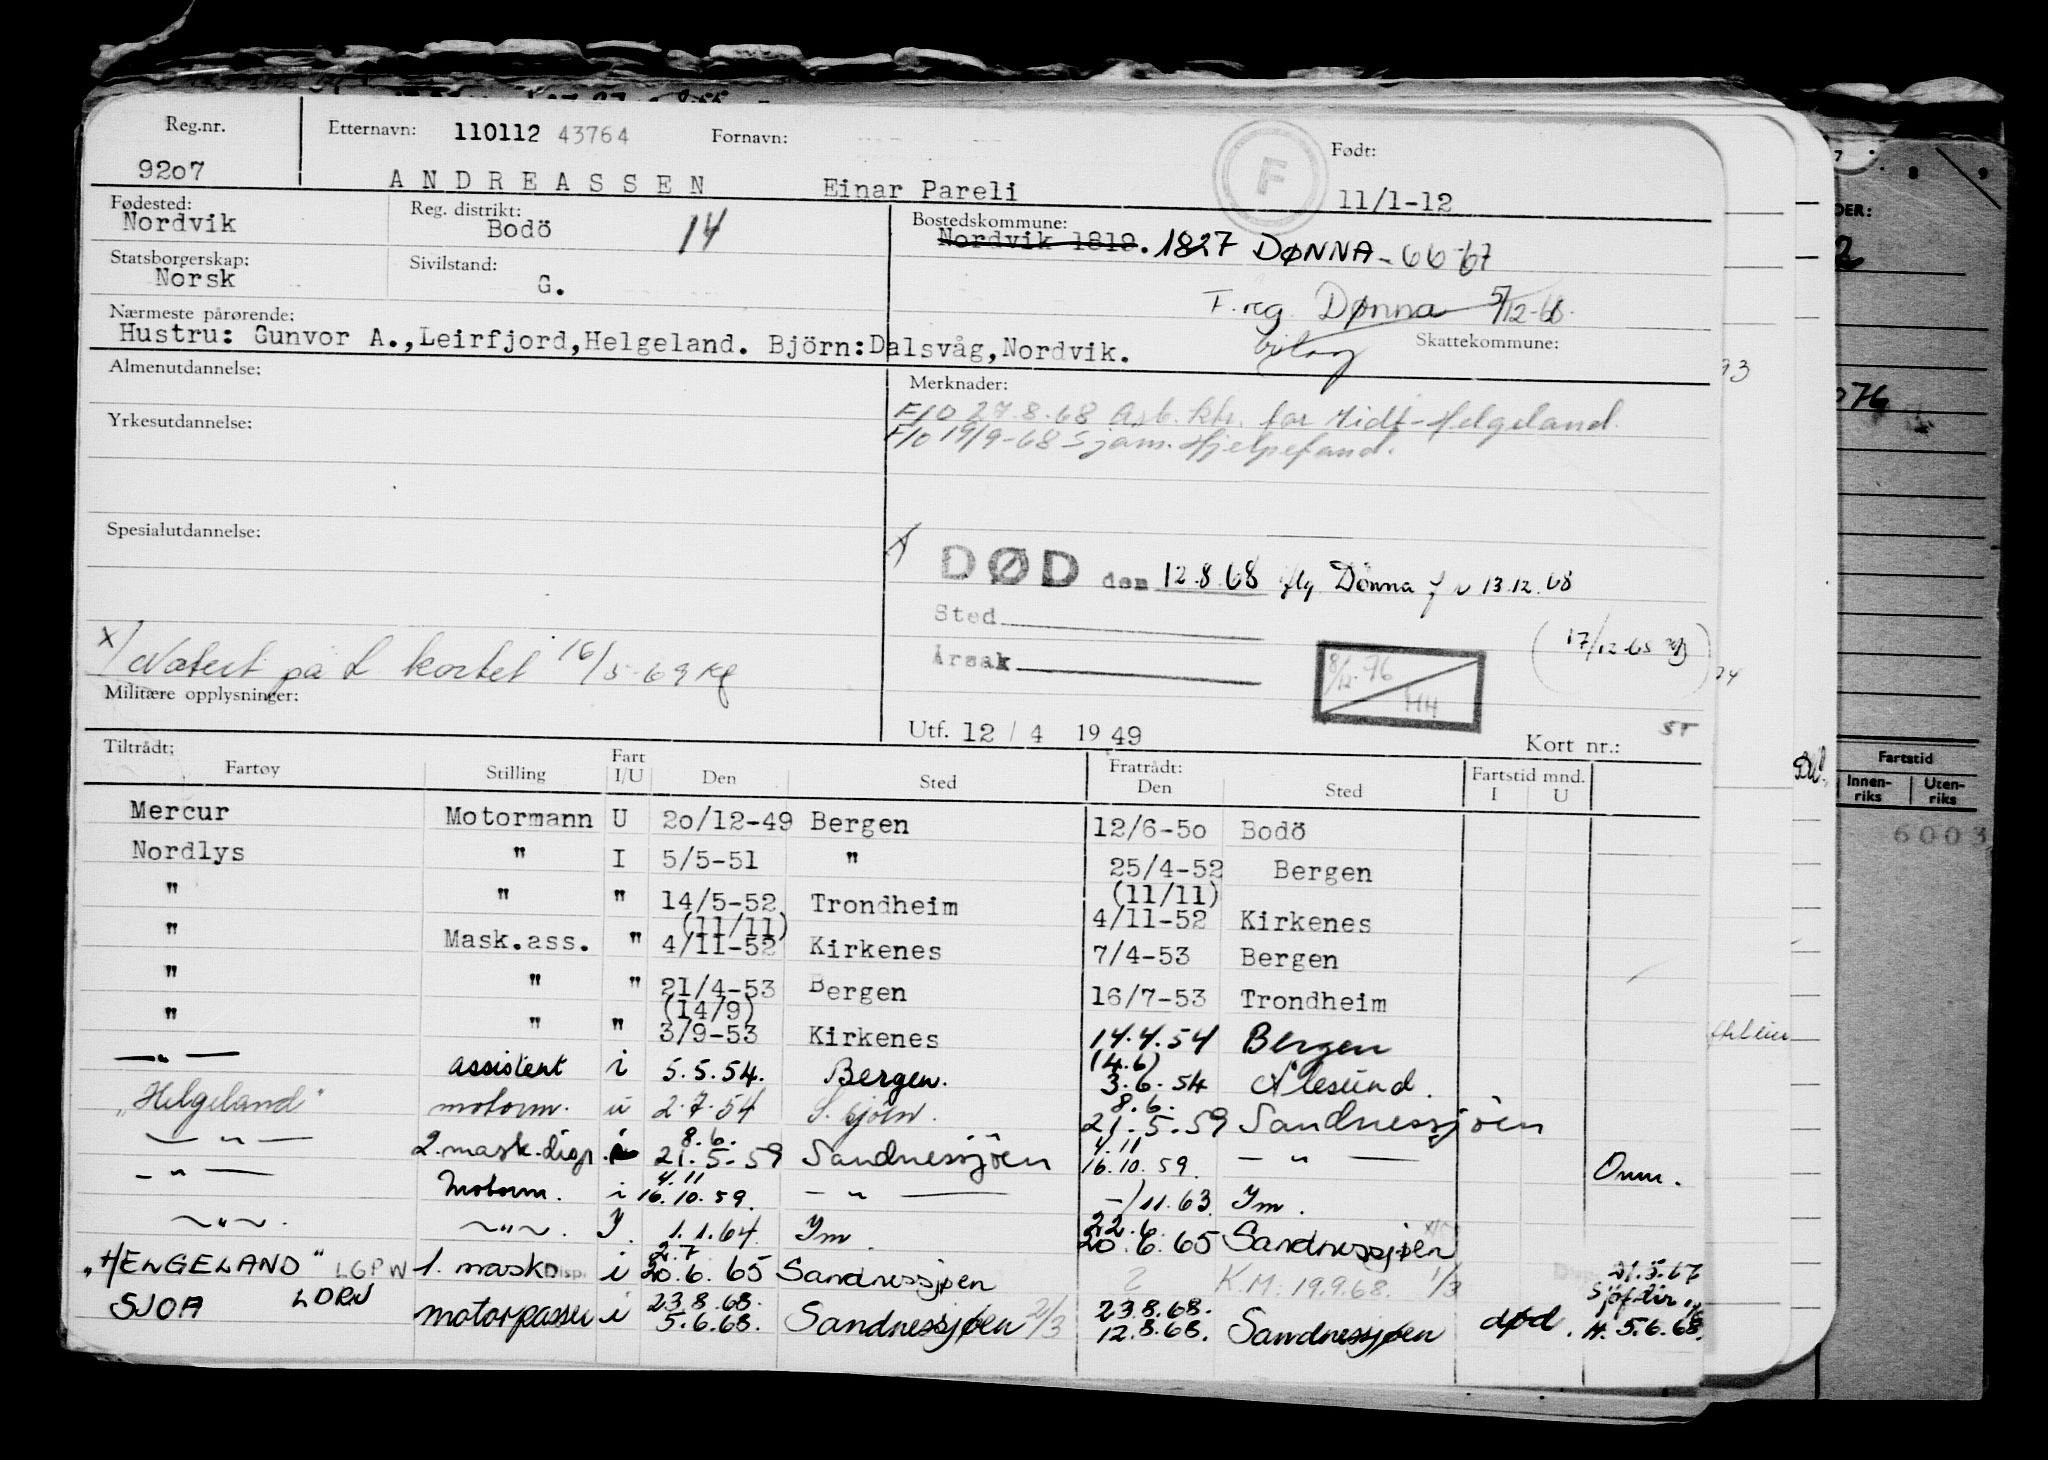 Reg.nr. Etternavn: 110112 43764 Fornavn: Født:
9207 ANDREASSEN Einar Pareli F 11/1-12
Fødested: Reg. distrikt: Bostedskommune:
Nordvik Bodö 14 Nordvik 1819. 1827 DØNNA - 66-67
Statsborgerskap: Sivilstand:
Norsk G. F.reg Dønna 5/12-68.
Nærmeste pårørende: Skattekommune:
Hustru: Gunvor A.,Leirfjord,Helgeland. Björn:Dalsvåg,Nordvik.
Almenutdannelse: Merknader:
F/O 27.8.68 Arb. ktr. for Midt-Helgeland.
Yrkesutdannelse: F/O 19/9-68 Sjøm. Hjelpefond.
Spesialutdannelse:
DØD den 12.8.68 iflg Dönna f r 13.12.68
Sted
x) Notert på L kortet 16/5-69 Kf (17/12-68)
Årsak 8/12-76 HH
Militære opplysninger:
Utf. 12 / 4 19 49 Kort nr.: ST
Tiltrådt: Fart Fratrådt: Fartstid mnd.
Fartøy Stilling I/U Den Sted Den Sted I U
Mercur Motormann U 20/12-49 Bergen 12/6-50 Bodö
Nordlys " I 5/5-51 " 25/4-52 Bergen
" " " 14/5-52 Trondheim (11/11) 4/11-52 Kirkenes
" Mask.ass. " (11/11) 4/11-52 Kirkenes 7/4-53 Bergen
" " " 21/4-53 Bergen 16/7-53 Trondheim
" " " (14/9) 3/9-53 Kirkenes 14.4.54 Bergen
—"— assistent i 5.5.54. Bergen. (4.6) 3.6.54 Ålesund.
"Helgeland" motorm. u 2.7.54 S.sjöen. 8.6. 21.5.59 Sandnessjöen
—"— 2.mask.disp. i 8.6. 21.5-59 Sandnessjöen 4.11 16.10.59. —"— Onm.
—"— Motorm. i 4.11 16.10.59. —"— -/11.63. Ym.
—"—. —"—. I. 1.1.64. Ym. 22.6. 20.6.65 Sandnessjøen
"HELGELAND" LGPW 1. mask. Disp. i 2.7 20.6.65 Sandnessjøen K.M: 19.9.68. 1/3 21.5.67
SJOA LDRN motorpasser i 23.8.68. 5.6.68. Sandnessjøen 2/3 23.8.68. 12.8.68. Sandnessjøen død. 5.6.68.
DER:
076
Fartstid
Innen-riks Uten-riks
6003